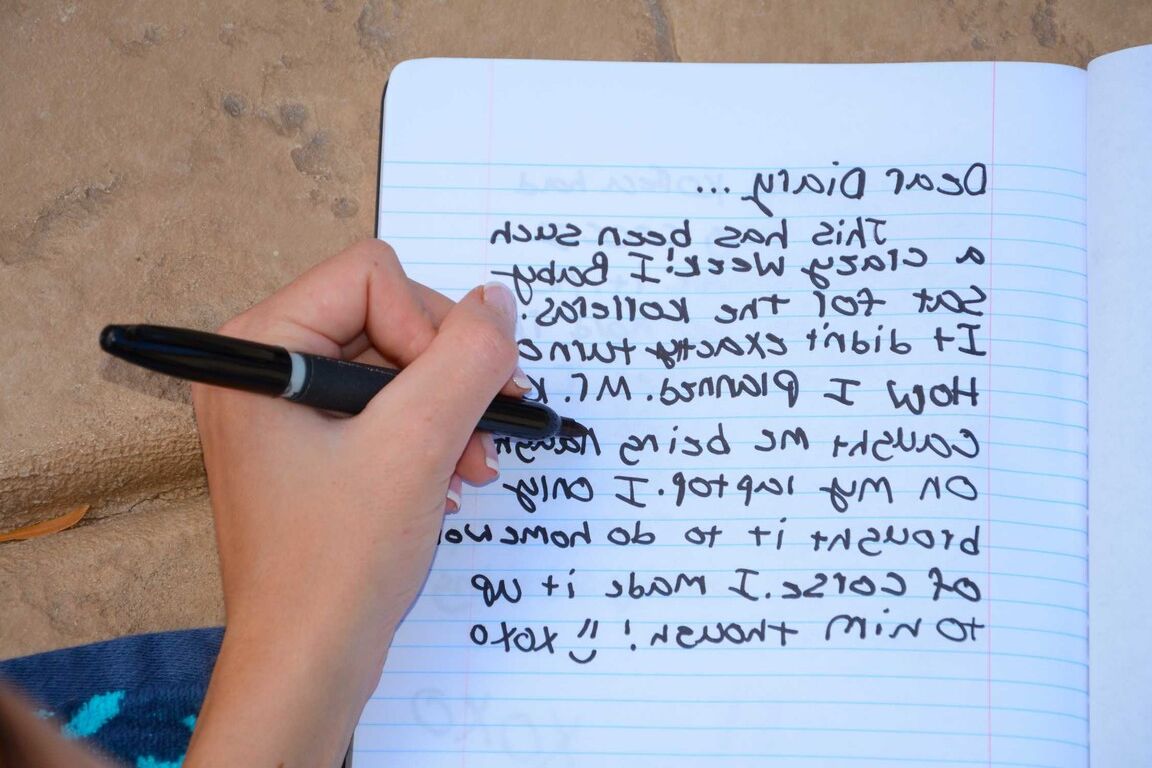 Dear Diary ...
This has been such
a crazy week! I Baby
sat for the
It didn't exactly turn
How I planned. Mr. K
Caught me being
on my laptop. I only
brought it to do
of corse. I made it up
to him though! xoxo